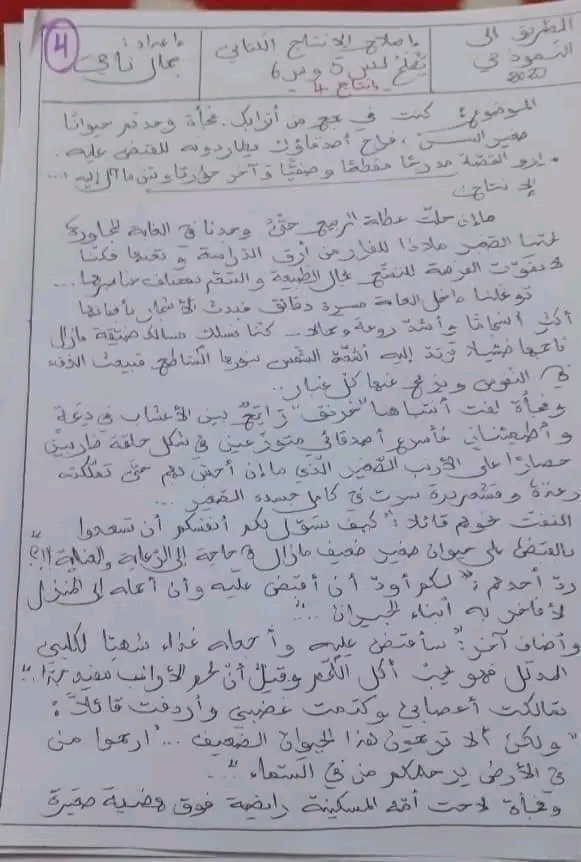 4
الطريق إلى
النموذجي
2020
إصلاح الإنتاج الكتابي
تقييم لس 5 وس 6
إنتاج 4
إعداد:
جمال نامي
الموضوع: كنت في مع من أترابك. فجأة وجدتم حيوانا
صغير السن، فراح أصدقاؤك يطاردونه للقبض عليه.
إرو القصة مدرجا مقطعا وصفيّا وآخر حواريّا وبيّن ما آل إليه...
الإنتاج:
ما إن حلّت عطلة الربيع حتّى وجدنا في الغابة المجاورة
لحيّنا القصر ملاذا للفرار من أرق الدّراسة و تعبها فكنّا
لا نفوّت الفرصة للتفسّح بجمال الطبيعة والتنعّم بمختلف عناصرها...
توغّلنا داخل الغابة مسيرة دقائق فبدت الأشجار بأفنانها
أكثر انسجاما وأشدّ روعة وجمالا... كنّا نسلك مسالك ضيّقة مازال
ناعمها ترتدّ إليه أشعّة الشّمس بنورها السّاطع فتبعث الدّفء
في النّفوس ويزيح عنها كلّ غبار..
وفجأة لفت أنتباهنا "خرنق" راتع بين الأعشاب في دعة
و أطمئنان فأسرع أصدقائي متوزّعين في شكل حلقة ضاربين
حصارًا على الأرنب الصّغير الّذي ما إن أحسّ بهم حتّى تملّكته
رعدة وقشعريرة سرت في كامل جسده الصّغير...
التفت نحوهم قائلا: "كيف تسوّل لكم أنفسكم أن تسعدوا
بالقبض على حيوان صغير ضعيف مازال في حاجة إلى الرّعاية والعناية؟!!"
ردّ أحدهم: "لكم أودّ أن أقبض عليه وأن أحمله إلى المنزل
لأفاخر به أبناء الجيران..."
وأضاف آخر: "سأقبض عليه و أجعله غذاء شهيّا لكلبي
المدلّل فهو يحبّ أكل اللّحم وقيل أنّ لحم الأرانب مفيد جدّا.."
تمالكت أعصابي وكتمت غضبي وأردفت قائلا:
"ولكن ألا ترحمون هذا الحيوان الضّعيف... ارحموا من
في الأرض يرحمكم من في السّماء"..
وفجأة لاحت أمّه المسكينة رابضة فوق هضبة صغيرة